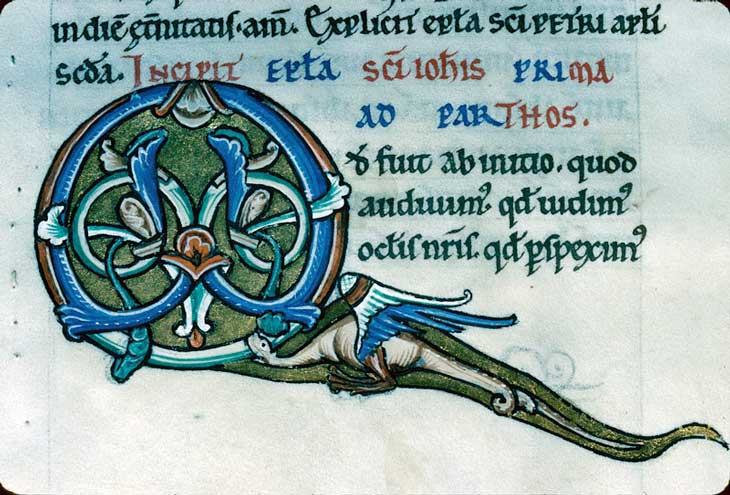 in diē et̄nitatis. am̄. Explicit ep̄la sc̄i PETRI ap̄li
sc̄da. INCIPIT EP̄LA SC̄I IOH̄IS PRIMA
AD PARTHOS.
Qđ fuit ab initio. quod
audiuim᷒. qđ uidim᷒
oc̄lis nr̄is. qđ p̱speximꝰ